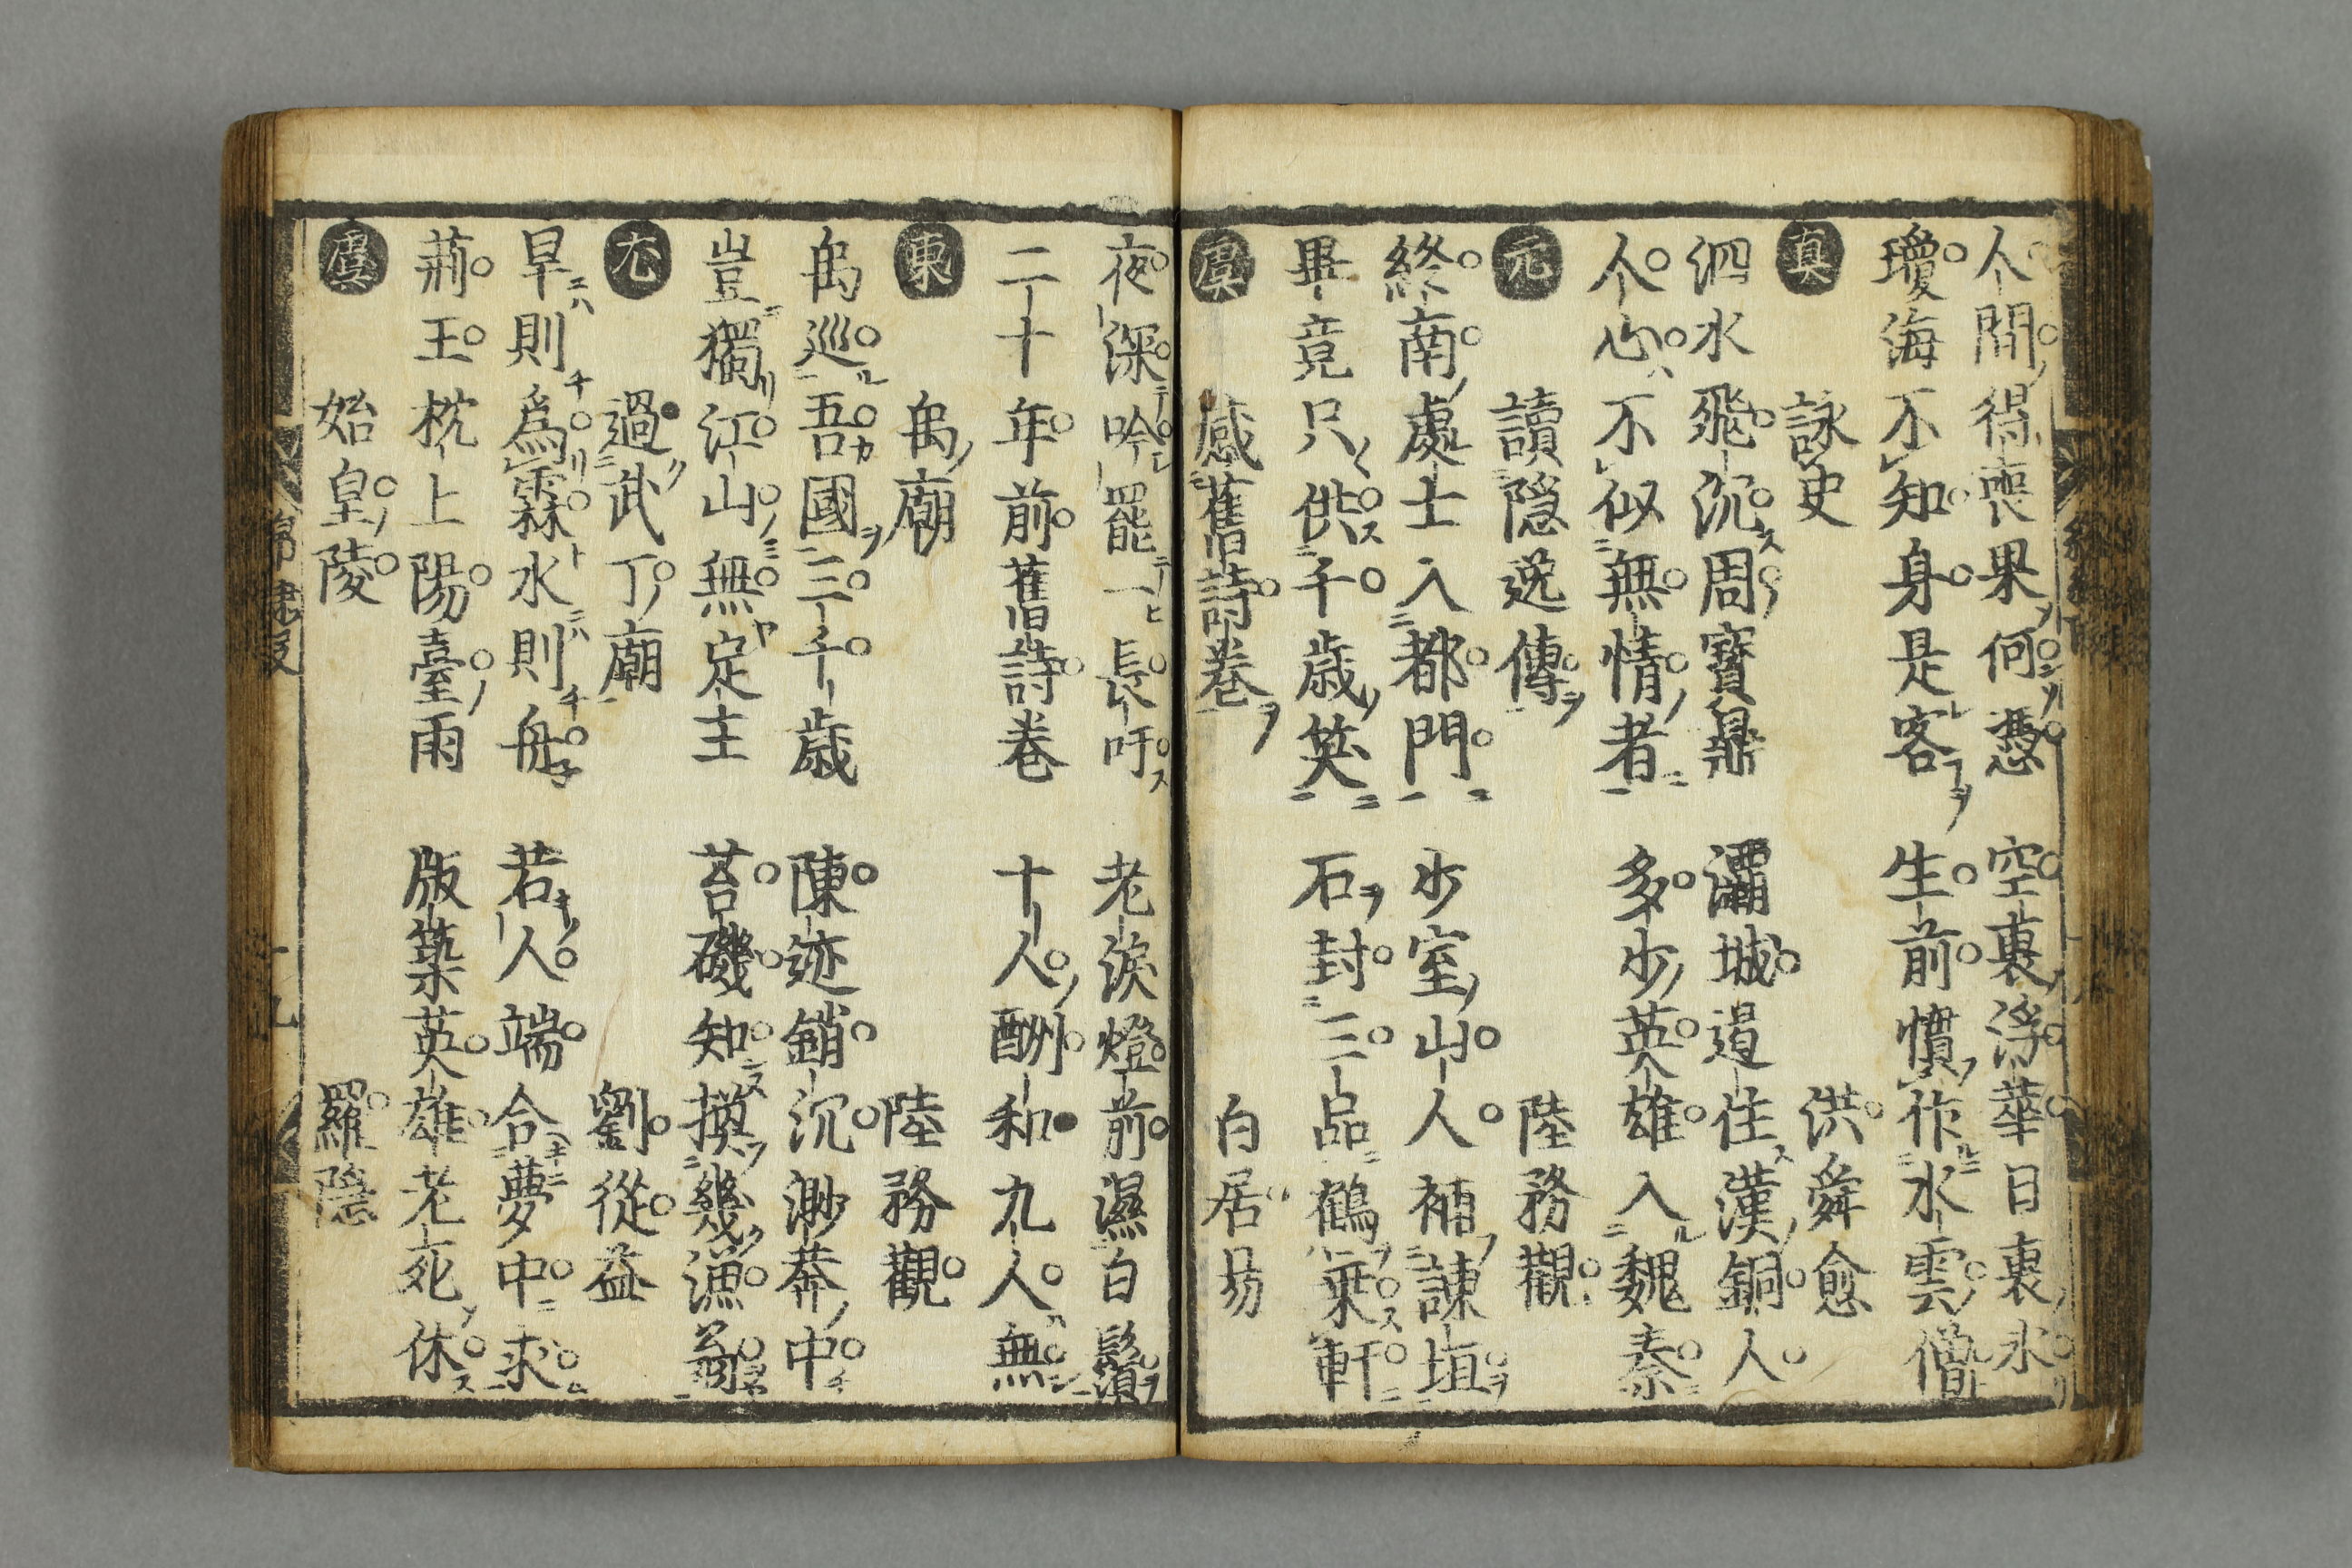 人間得喪果何憑 空裏浮華日裏氷
瓊海不知身是客 生前慣作水雲僧
真 詠史 洪舜愈
泗水飛沉周寶鼎 灞城遏住漢銅人
人心不似無情者 多少英雄入魏秦
元 讀隠逸傳 陸務觀
終南處士入都門 少室山人補諫垣
畢竟只供千歳笑 石封三品鶴乗軒
虞 感舊詩卷 白居易
夜深吟罷一長吁 老淚燈前濕白鬚
二十年前舊詩卷 十人酬和九人無
東 禹廟 陸務觀
禹巡吾國三千歳 陳迹銷沉渺莽中
豈獨江山無定主 苔磯知換幾漁翁
尤 過武丁廟 劉從益
旱則為霖水則舟 若人端合夢中求
荊王枕上陽臺雨 版築英雄老死休
虞 始皇陵 羅隠
錦繡段
十九